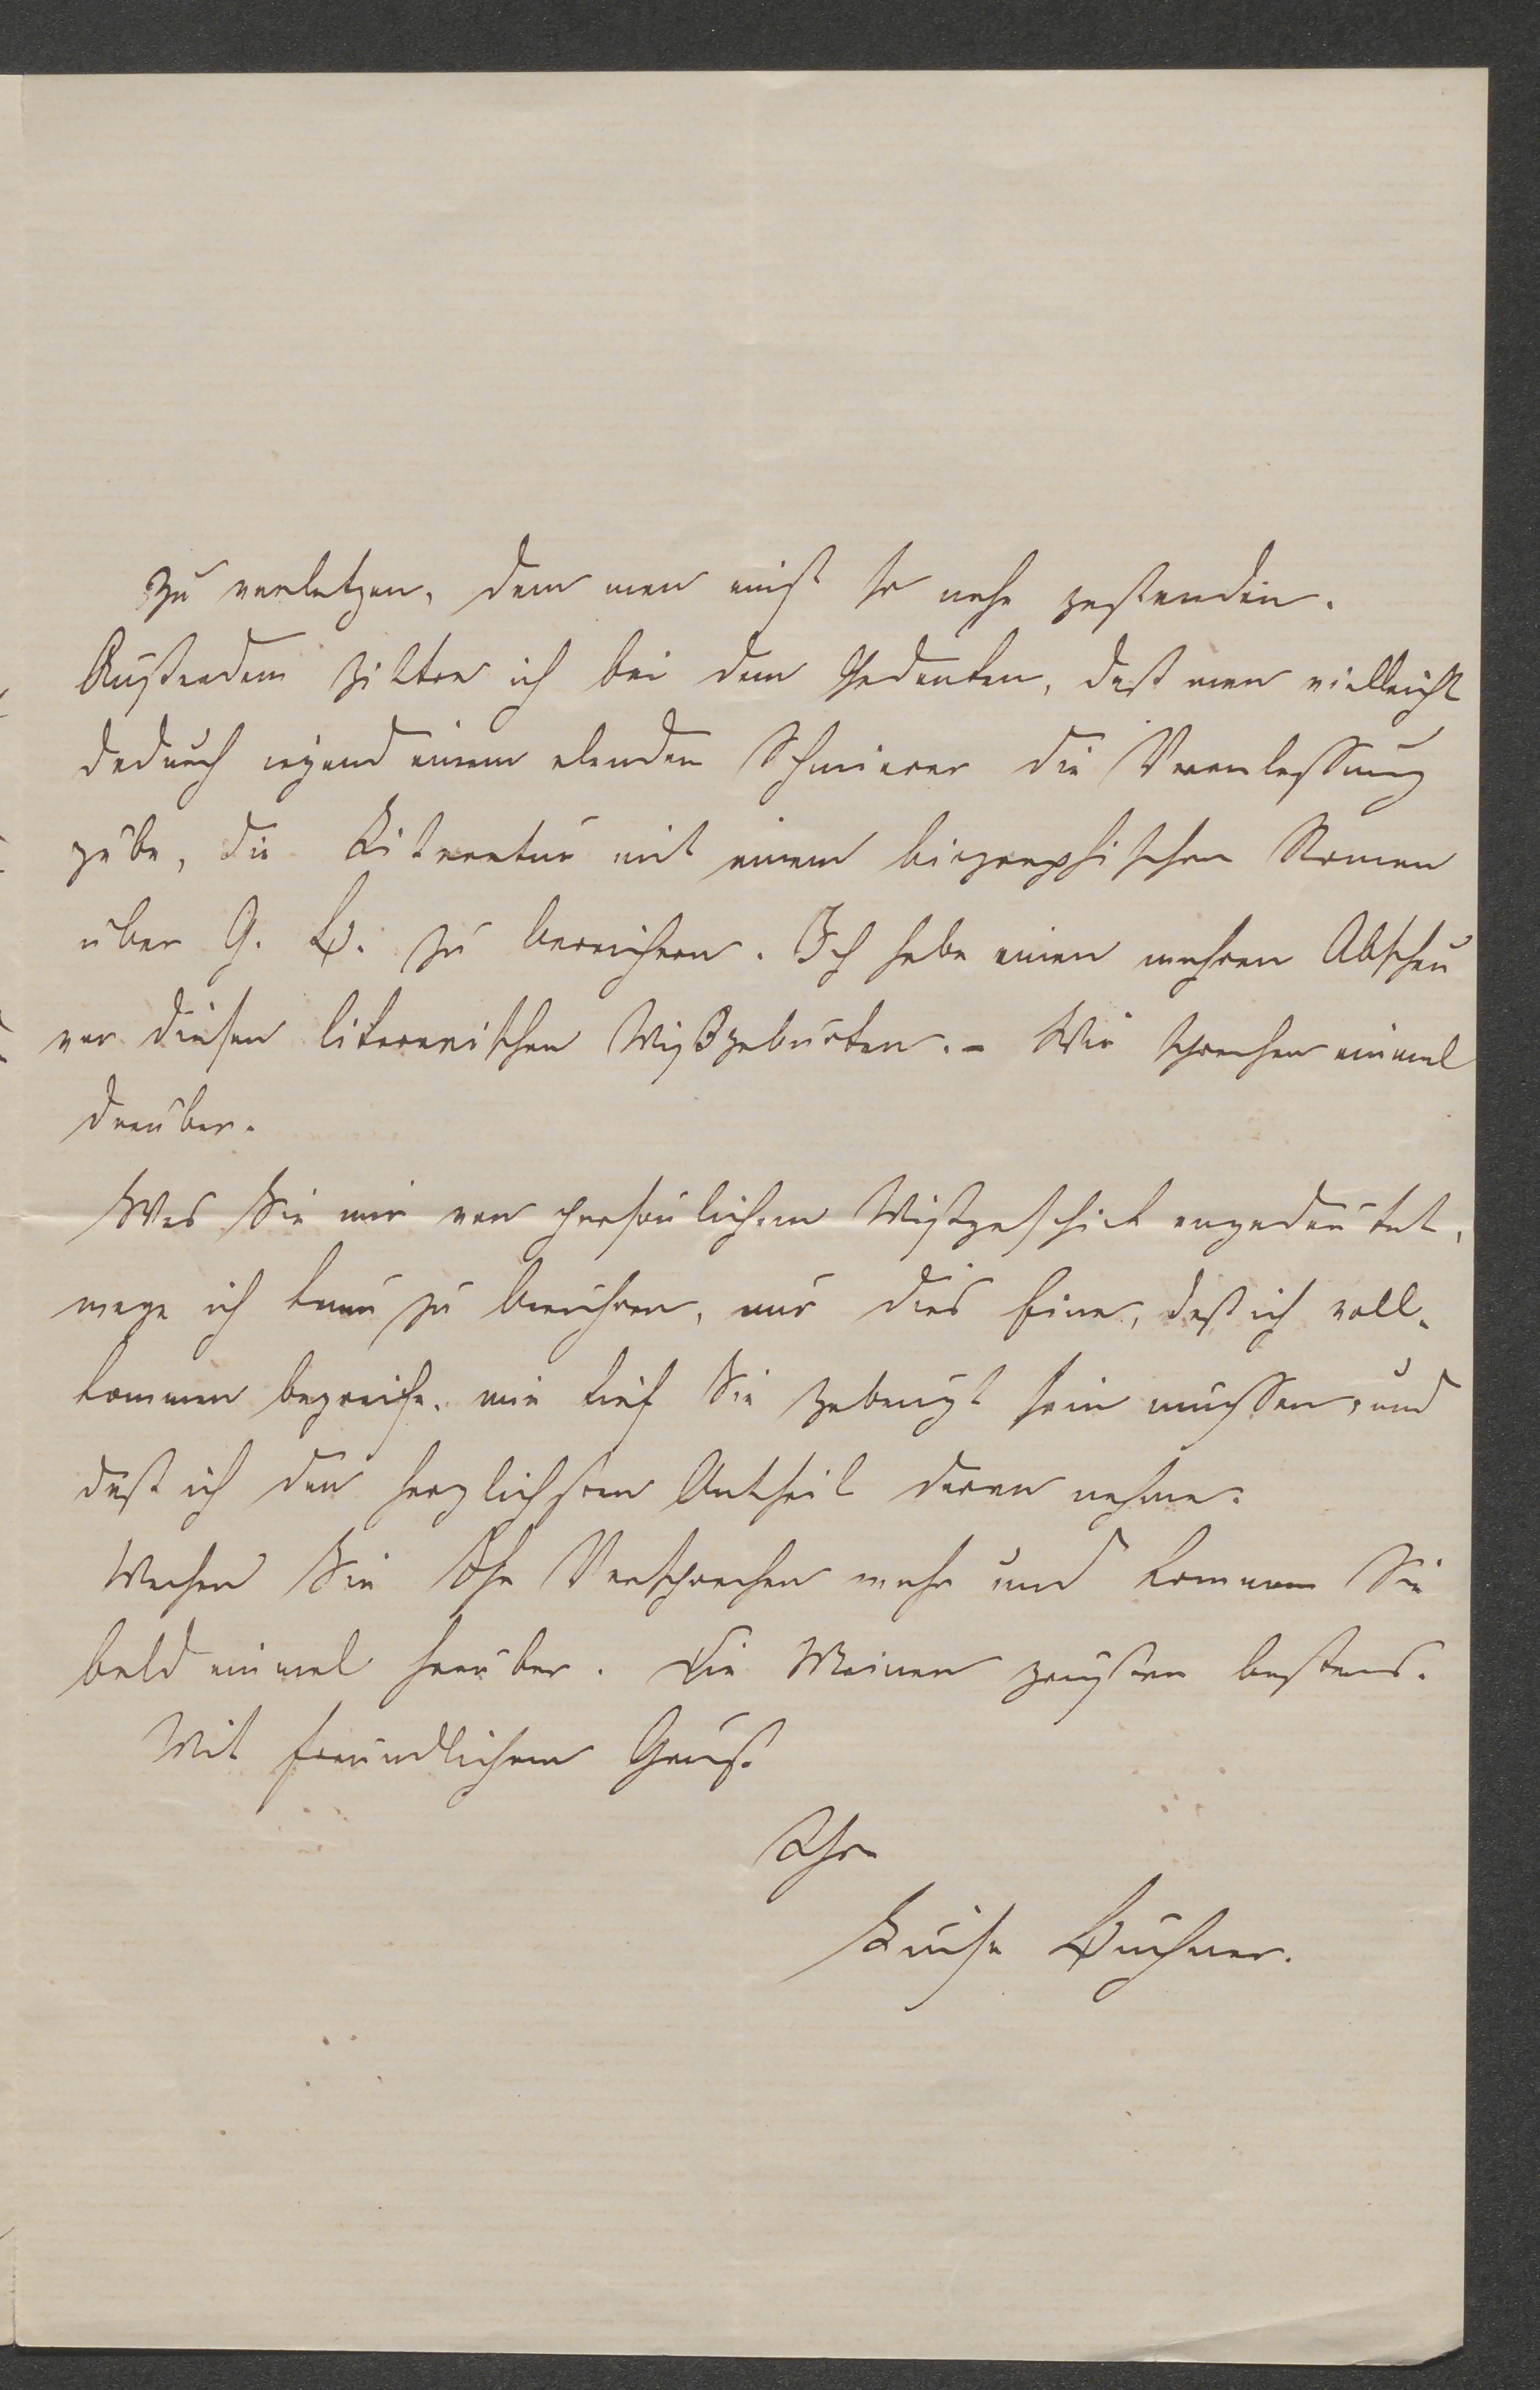 zu verletzen, dem man einst so nahe gestanden.
Außerdem zittre ich bei dem Gedanken, daß man vielleicht
dadurch irgend einem elenden Schmierer die Veranlassung
gäbe, die Literatur mit einem biographischen Roman
über G. B. zu bereichern. Ich habe einen wahren Abscheu
vor diesen literarischen Mißgeburten. – Wir sprechen einmal
darüber.
Was Sie mir von persönlichem Mißgeschick angedeutet,
wage ich kaum zu berühren, nur dies Eine, daß ich voll-
kommen begreife, wie tief Sie gebeugt sein müssen, und
daß ich den herzlichsten Antheil daran nehme.
Machen Sie Ihr Versprechen wahr und kommen Sie
bald einmal herüber. Die Meinen grüßen bestens.
Mit freundlichem Gruß
Ihre
Luise Büchner.